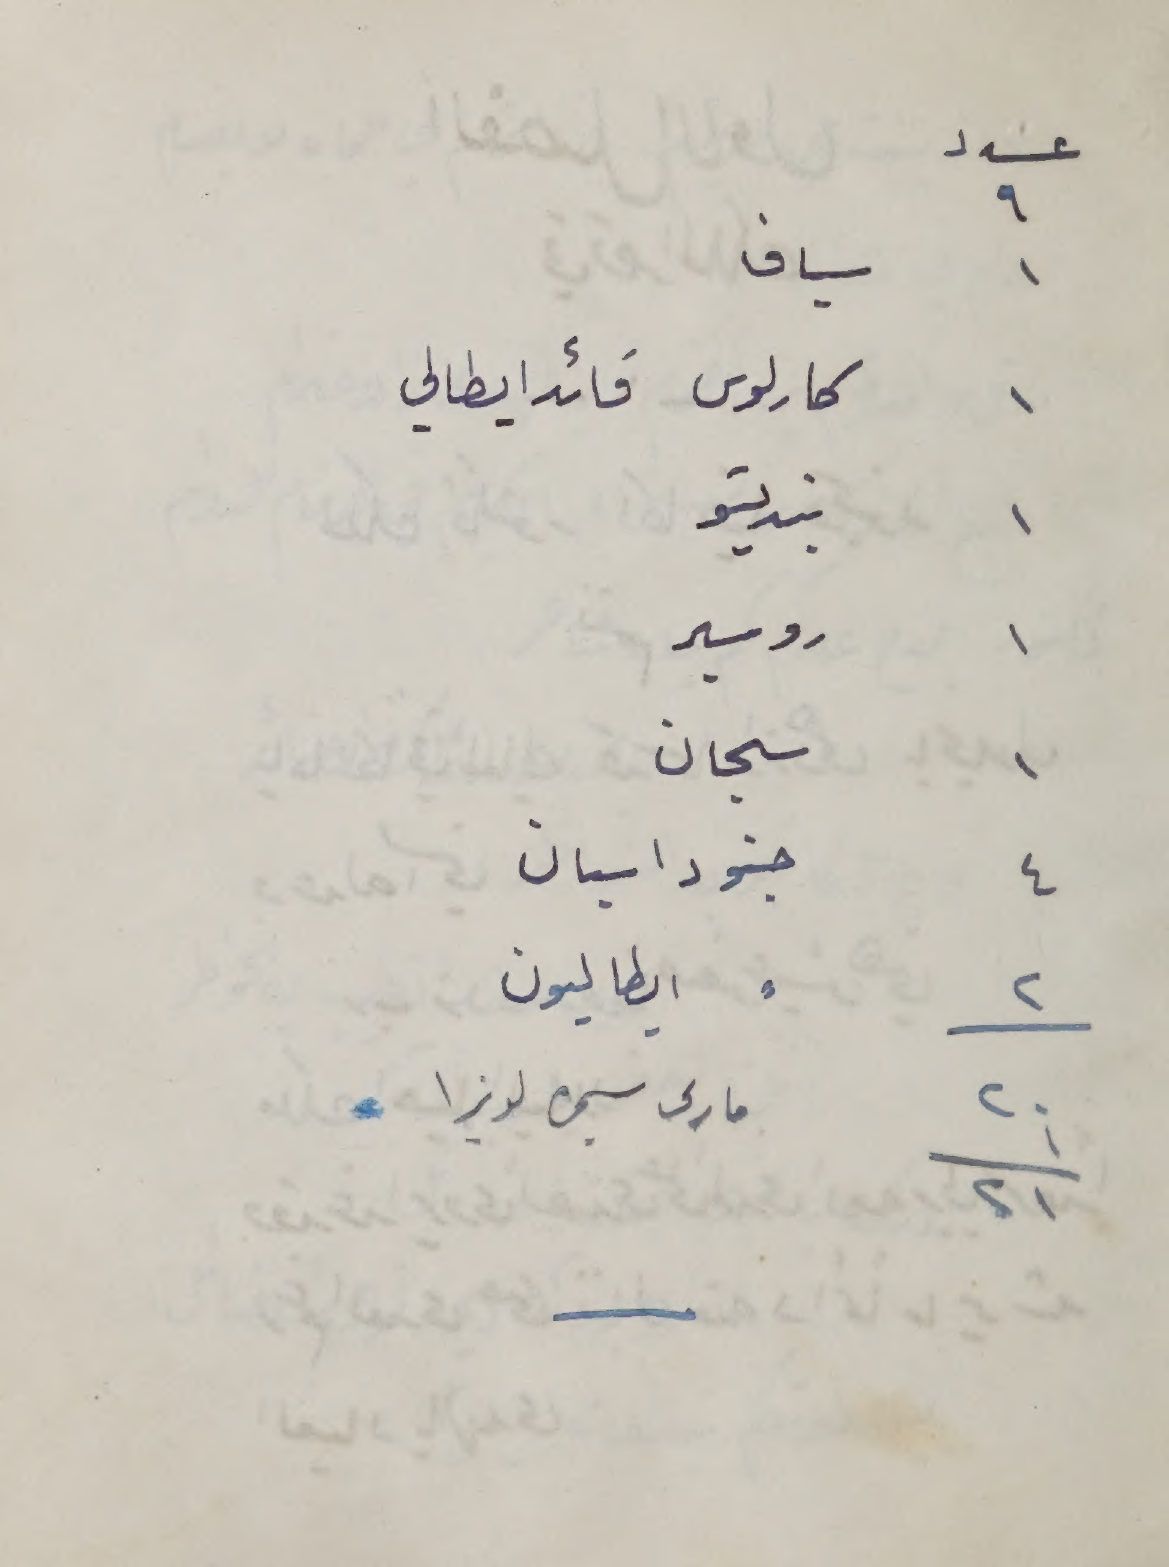 عدد
٩
١ سياف
١ كارلوس قائد ايطالي
١ بنديتو
١ روسير
١ سجان
٤ جنود اسبان
٢ " ايطاليون
٢٠ ماري لويزا
١
٢١